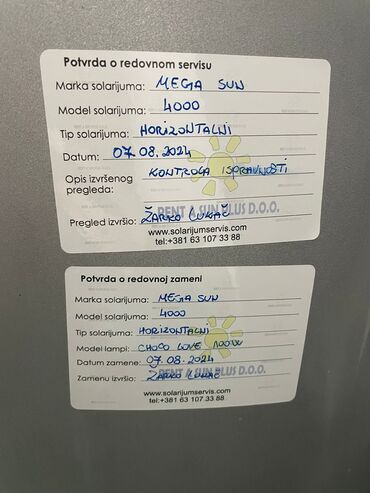 Potvrda o redovnom servisu
Marka solarijuma: MEGA SUN
Model solarijuma: 4000
Tip solarijuma: HORIZONTALNI
Datum: 07.08.2024
Opis izvršenog KONTROLA ISPRAVNOSTI
pregleda:
RENT A SUN PLUS D.O.O.
Pregled izvršio: ŽARKO LUKAČ
www.solarijumservis.com
tel:+381 63 107 33 88
Potvrda o redovnoj zameni
Marka solarijuma: MEGA SUN
Model solarijuma: 4000
Tip solarijuma: HORIZONTALNI
Model lampi: CHOCO LOVE 100W
Datum zamene: 07.08.2024
RENT A SUN PLUS D.O.O.
Zamenu izvršio: ŽARKO LUKAČ
www.solarijumservis.com
tel:+381 63 107 33 88